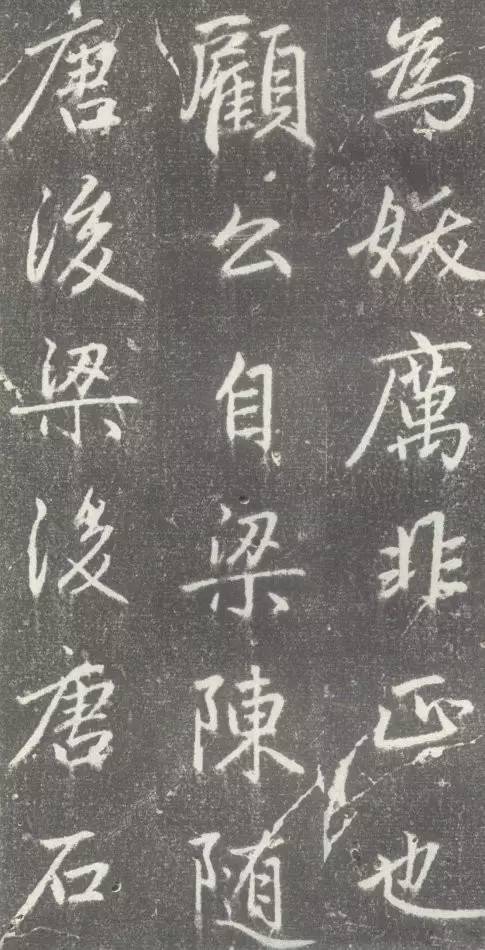 為妖厲非正也
顧公自梁陳随
唐後梁後唐石